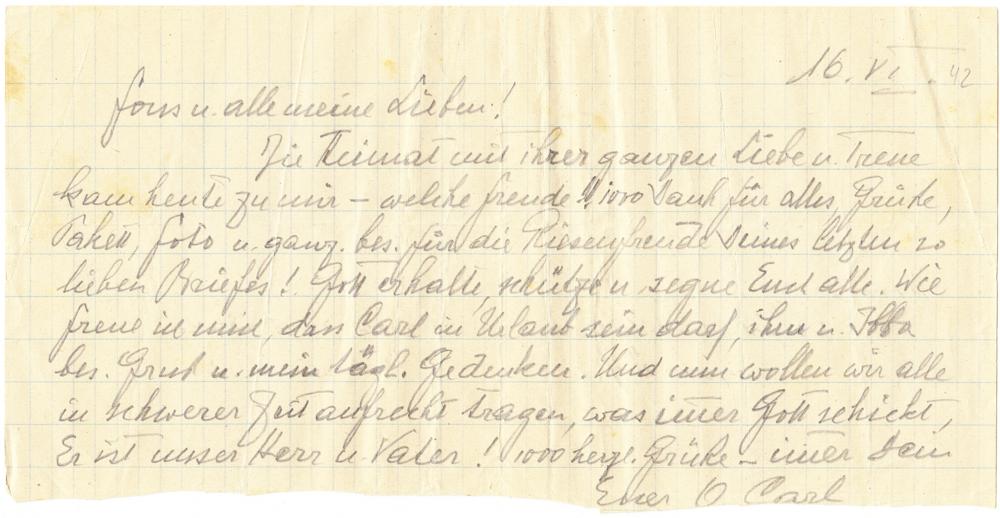 16. VI. 42
Fons u. alle meine Lieben!
Die Heimat mit ihrer ganzen Liebe u. Treue
kam heute zu mir – welche Freude!! 1000 Dank für alles, Grüße,
Pakett, Foto u. ganz. bes. für die Riesenfreude Deines letzten so
lieben Briefes! Gott erhalte, schütze u. segne Euch alle. Wie
freue ich mich, dass Carl in Urlaub sein darf, ihm u. Ibba
bes. Gruß u. mein tägl. Gedenken. Und nun wollen wir alle
in schwerer Zeit aufrecht tragen, was imer Gott schickt,
Er ist unser Herr u. Vater! 1000 herzl. Grüße – imer Dein
Euer O Carl